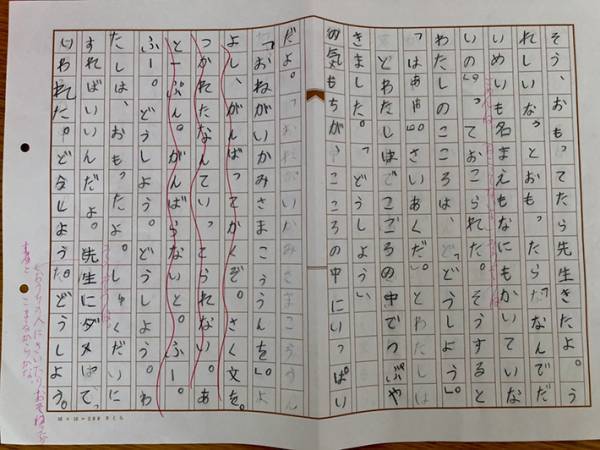 そう、おもってたら先生きたよ。う
れしいな。」とおもったら「なんでだ
いめいも名まえもなにもかいていな
いの。」っておこられた。そうすると
わたしのこころは、「どうしよう。」
「はぁぁ。さいあくだ。」とわたしは
どわたしはでごころの中でつぶや
きました。「どうしよう。」
の気もちが、こころの中にいっぱい
だよ。
「おねがいかみさまこううんを。」
よし、がんばってかくぞ。さく文を。
つかれたなんていってられない。あ
と一ぷん。がんばらないと。ふー。
ふー。どうしよう。どうしよう。わ
たしは、おもったよ。しゅくだいに
すればいいんだよ。先生にダメはて、
いわれた。ど今しようた。どうしよう。